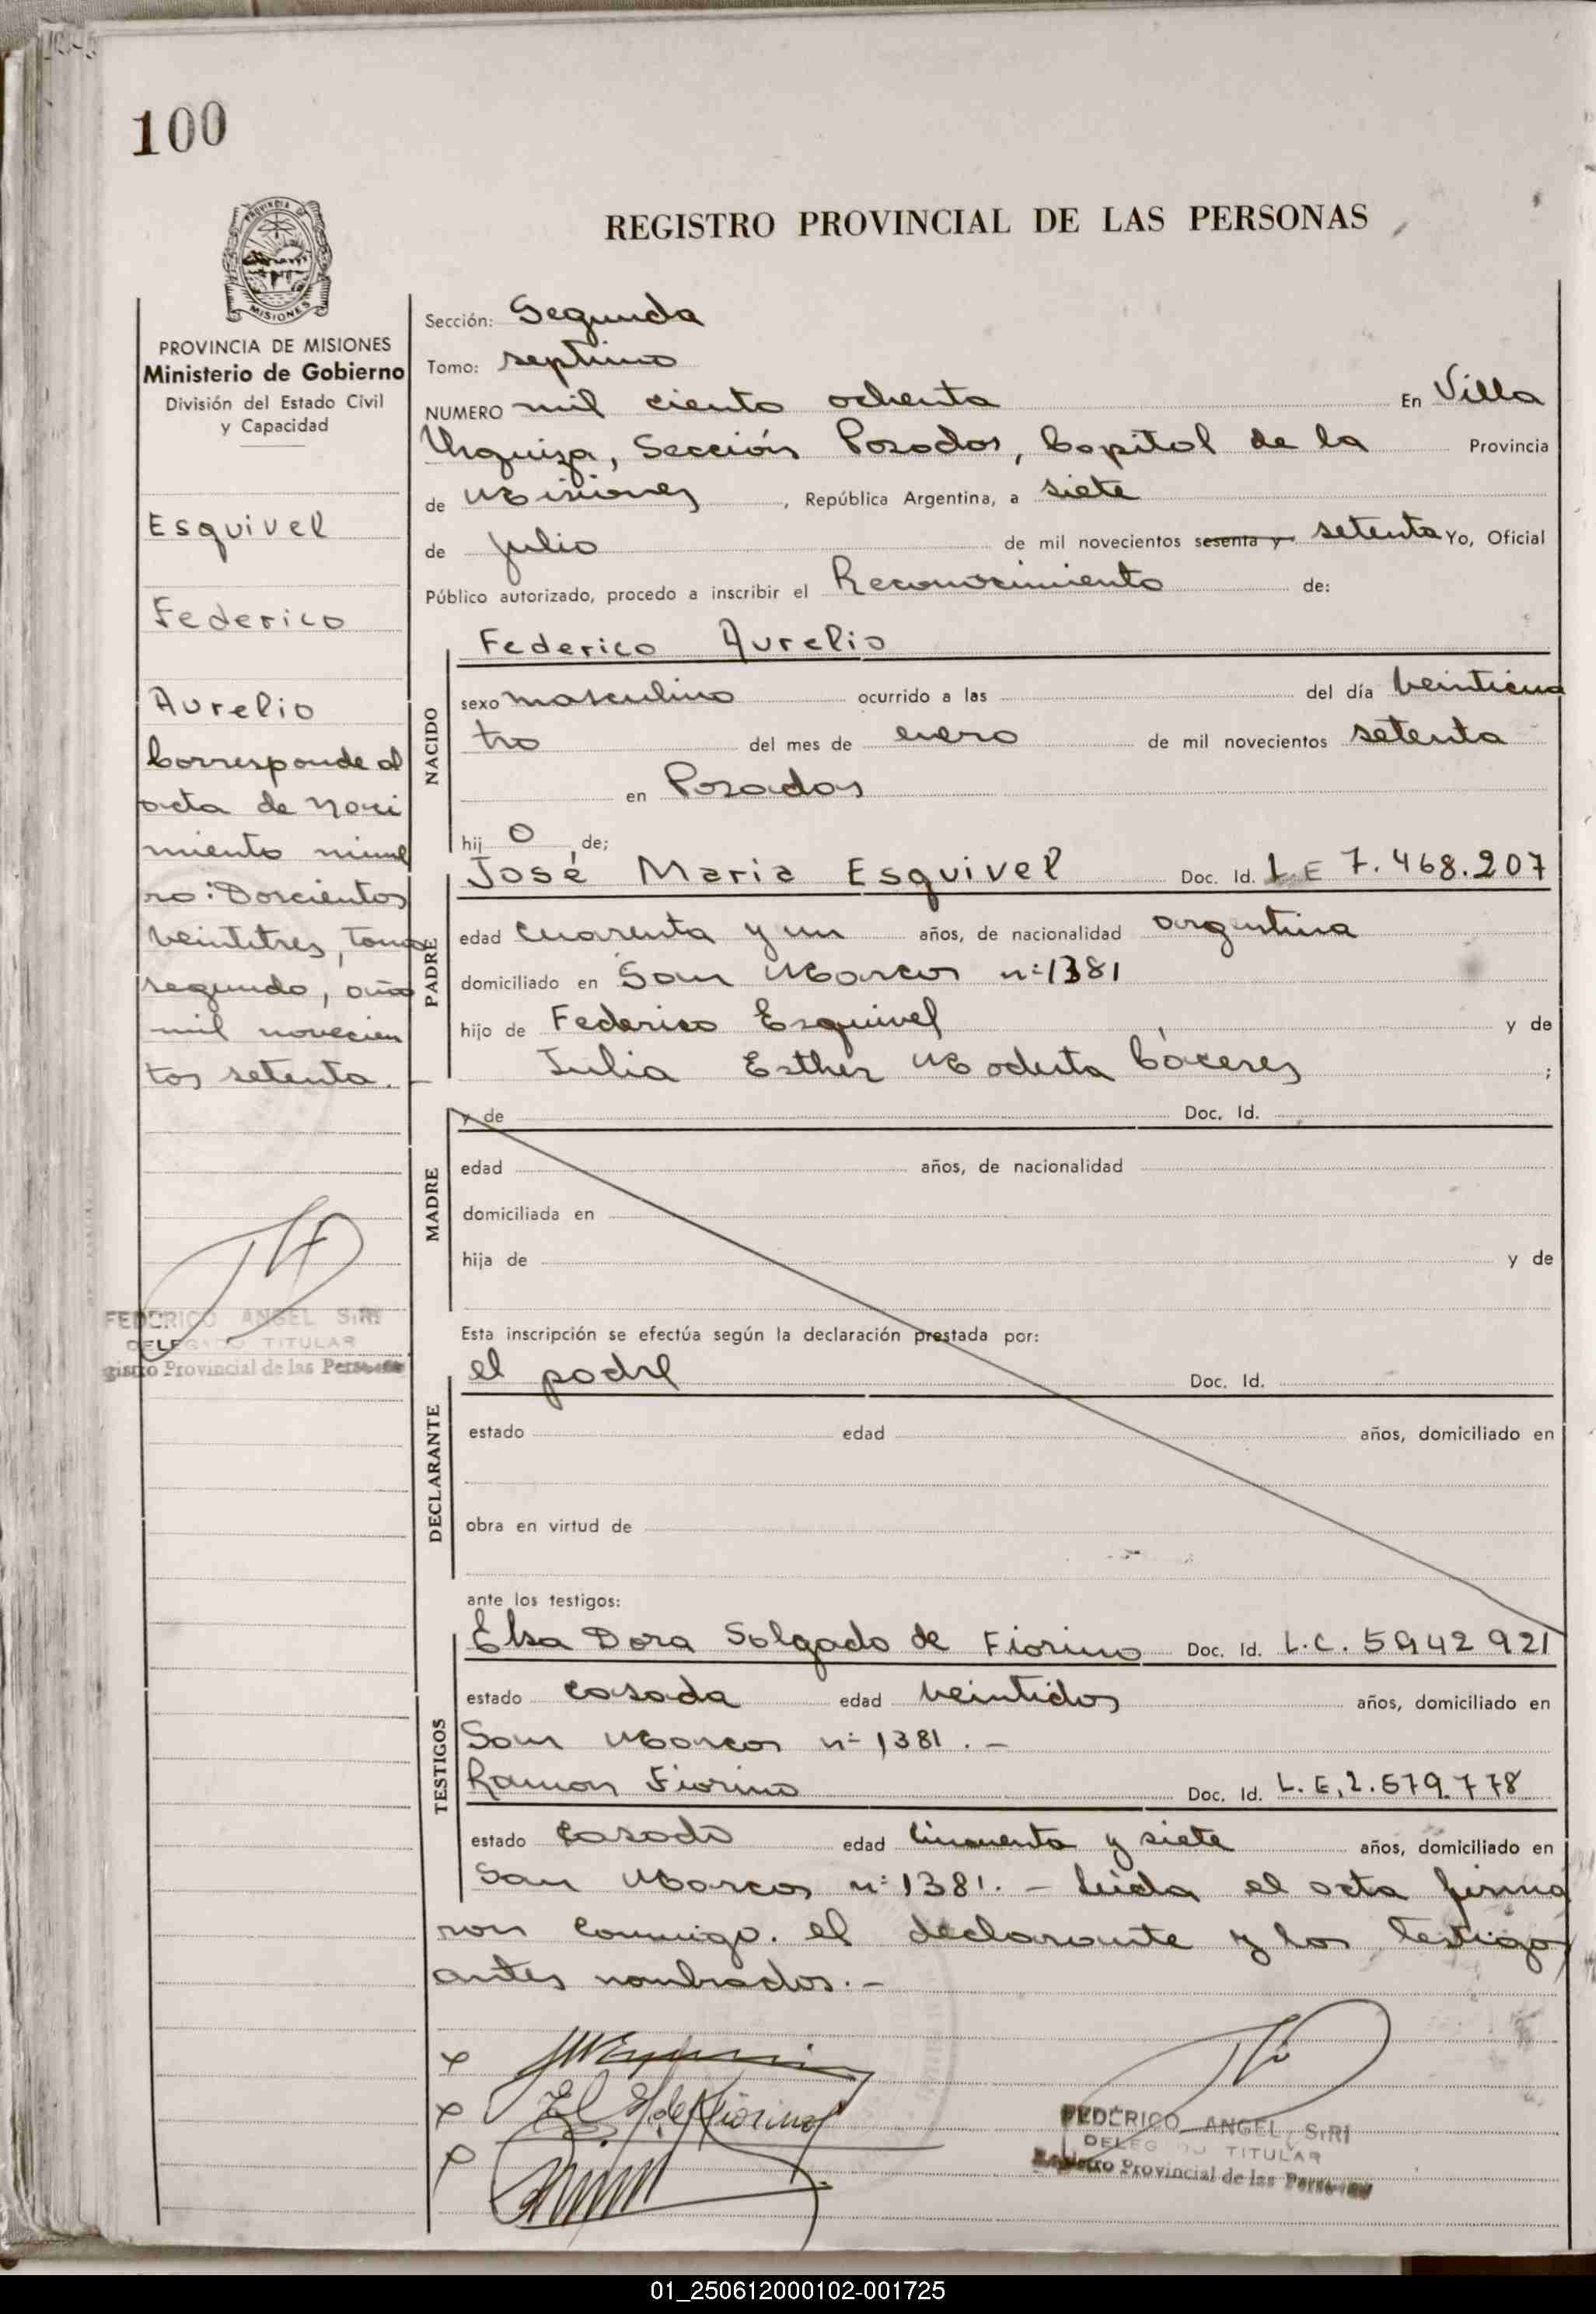 100
PROVINCIA DE
MISIONES
REGISTRO PROVINCIAL DE LAS PERSONAS
PROVINCIA DE MISIONES
Ministerio de Gobierno
División del Estado Civil
y Capacidad
Esquivel
Federico
Aurelio
Corresponde al
acta de naci
miento núme
ro: Doscientos
veintitres, tomo
segundo, año
mil novecien
tos setenta.
FEDERICO ANGEL SIRI
DELEGADO TITULAR
gistro Provincial de las Personas
Sección: Segunda
Tomo: septimo
NUMERO mil ciento ochenta En Villa
Urquiza, Sección Posadas, Capital de la Provincia
de Misiones, República Argentina, a siete
de julio de mil novecientos sesenta y setenta Yo, Oficial
Público autorizado, procedo a inscribir el Reconocimiento de:
NACIDO
Federico Aurelio
sexo masculino ocurrido a las del día veinticua
tro del mes de enero de mil novecientos setenta
en Posadas
hij o de;
PADRE
José Maria Esquivel Doc. Id. L E 7.468.207
edad cuarenta y un años, de nacionalidad argentina
domiciliado en San Marcos nº 1381
hijo de Federico Esquivel y de
Julia Esther Modesta Cáceres ;
MADRE
y de Doc. Id.
edad años, de nacionalidad
domiciliada en
hija de y de
Esta inscripción se efectúa según la declaración prestada por:
DECLARANTE
el padre Doc. Id.
estado edad años, domiciliado en
obra en virtud de
ante los testigos:
TESTIGOS
Elsa Dora Salgado de Fiorino Doc. Id. L.C. 5942921
estado casada edad veintidos años, domiciliado en
San Marcos nº 1381. -
Ramon Fiorino Doc. Id. L.E. 2.579.778
estado casado edad cincuenta y siete años, domiciliado en
San Marcos nº 1381. - Leida el acta firma
ron conmigo. el declarante y los testigos
antes nombrados. -
FEDERICO ANGEL SIRI
DELEGADO TITULAR
Registro Provincial de las Personas
01_250612000102-001725